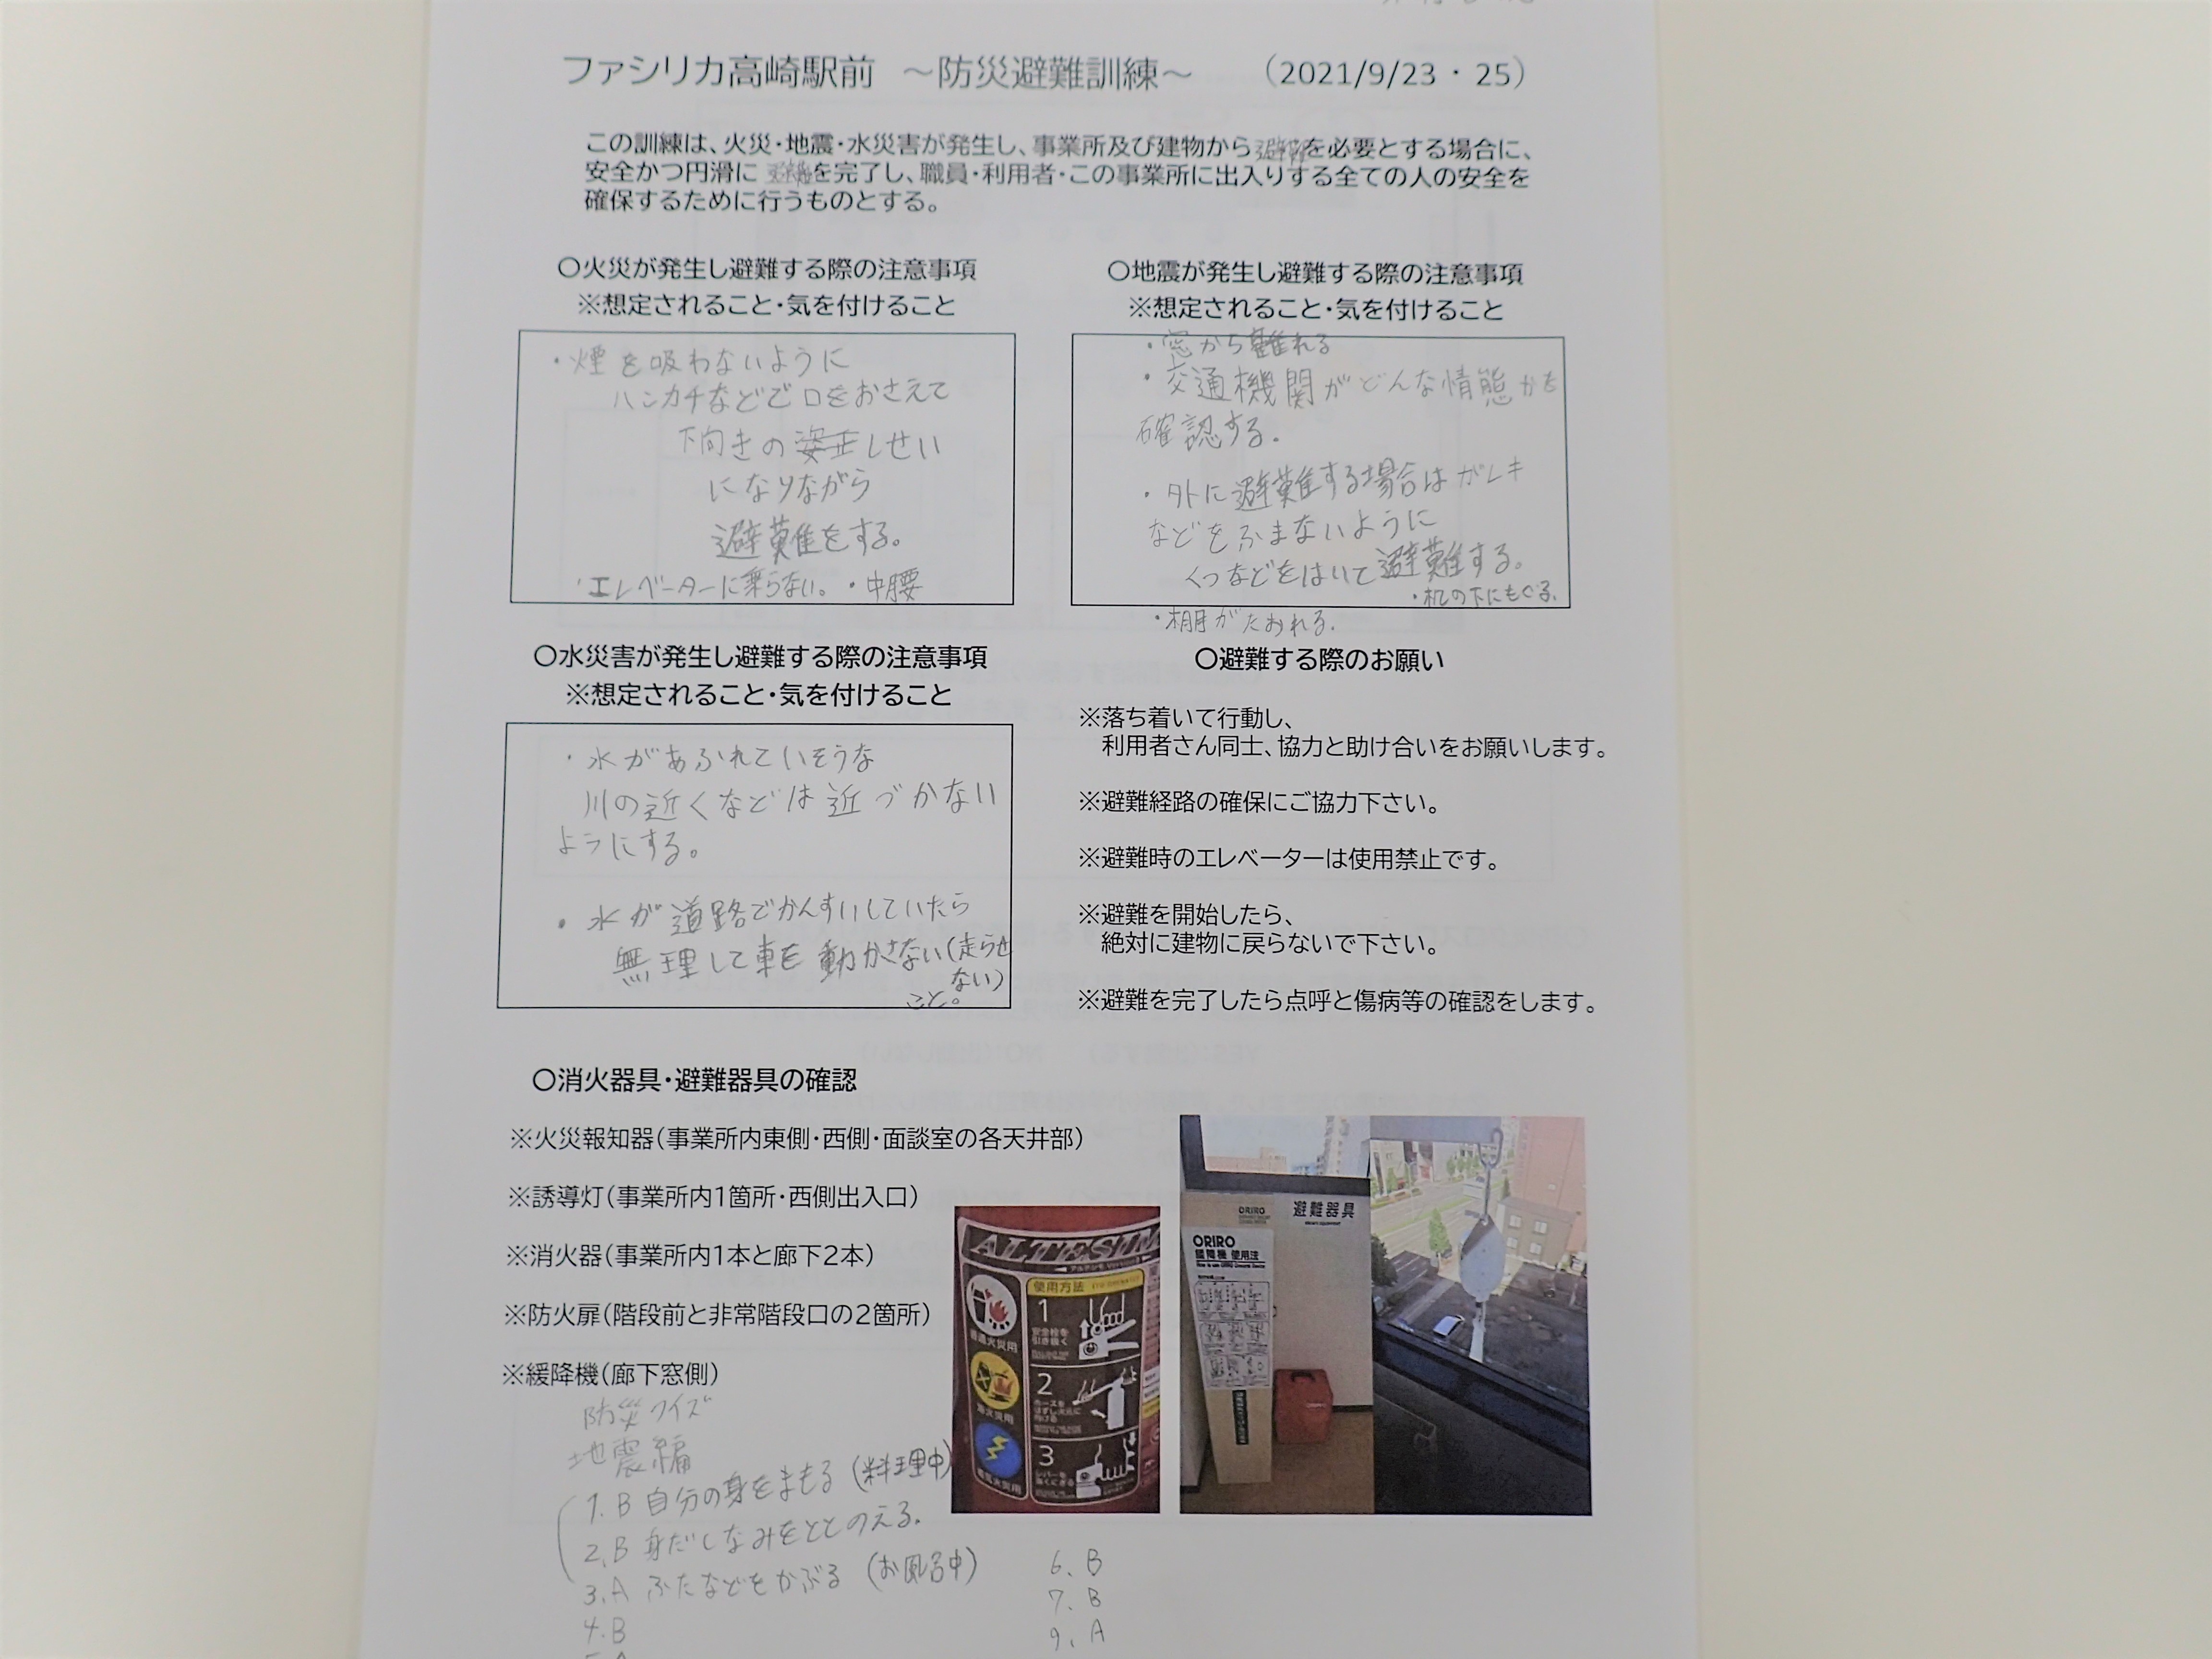 ファシリカ高崎駅前 ～防災避難訓練～ （2021/9/23・25）
この訓練は、火災・地震・水災害が発生し、事業所及び建物から避難を必要とする場合に、
安全かつ円滑に避難を完了し、職員・利用者・この事業所に出入りする全ての人の安全を
確保するために行うものとする。
〇火災が発生し避難する際の注意事項
※想定されること・気を付けること
・煙を吸わないように
ハンカチなどで口をおさえて
下向きの しせい
になりながら
避難をする。
・エレベーターに乗らない。・中腰
〇地震が発生し避難する際の注意事項
※想定されること・気を付けること
・窓から離れる
・交通機関がどんな情態かを
確認する。
・外に避難する場合はガレキ
などをふまないように
くつなどをはいて避難する。
・机の下にもぐる。
・棚がたおれる。
〇水災害が発生し避難する際の注意事項
※想定されること・気を付けること
・水があふれていそうな
川の近くなどは近づかない
ようにする。
・水が道路でかんすいしていたら
無理して車を動かさない(走らせ
ない)
こと。
〇避難する際のお願い
※落ち着いて行動し、
利用者さん同士、協力と助け合いをお願いします。
※避難経路の確保にご協力下さい。
※避難時のエレベーターは使用禁止です。
※避難を開始したら、
絶対に建物に戻らないで下さい。
※避難を完了したら点呼と傷病等の確認をします。
〇消火器具・避難器具の確認
※火災報知器（事業所内東側・西側・面談室の各天井部）
※誘導灯（事業所内1箇所・西側出入口）
※消火器（事業所内1本と廊下2本）
※防火扉（階段前と非常階段口の2箇所）
※緩降機（廊下窓側）
ALTESIM
使用方法
1
安全栓を
引き抜く
2
3
普通火災用
ORIRO
避難器具
ORIRO
緩降機 使用法
防災クイズ
地震編
1.B 自分の身をまもる (料理中)
2.B 身だしなみをととのえる.
3.A ふたなどをかぶる (お風呂中)
4.B
6、B
7、B
9、A